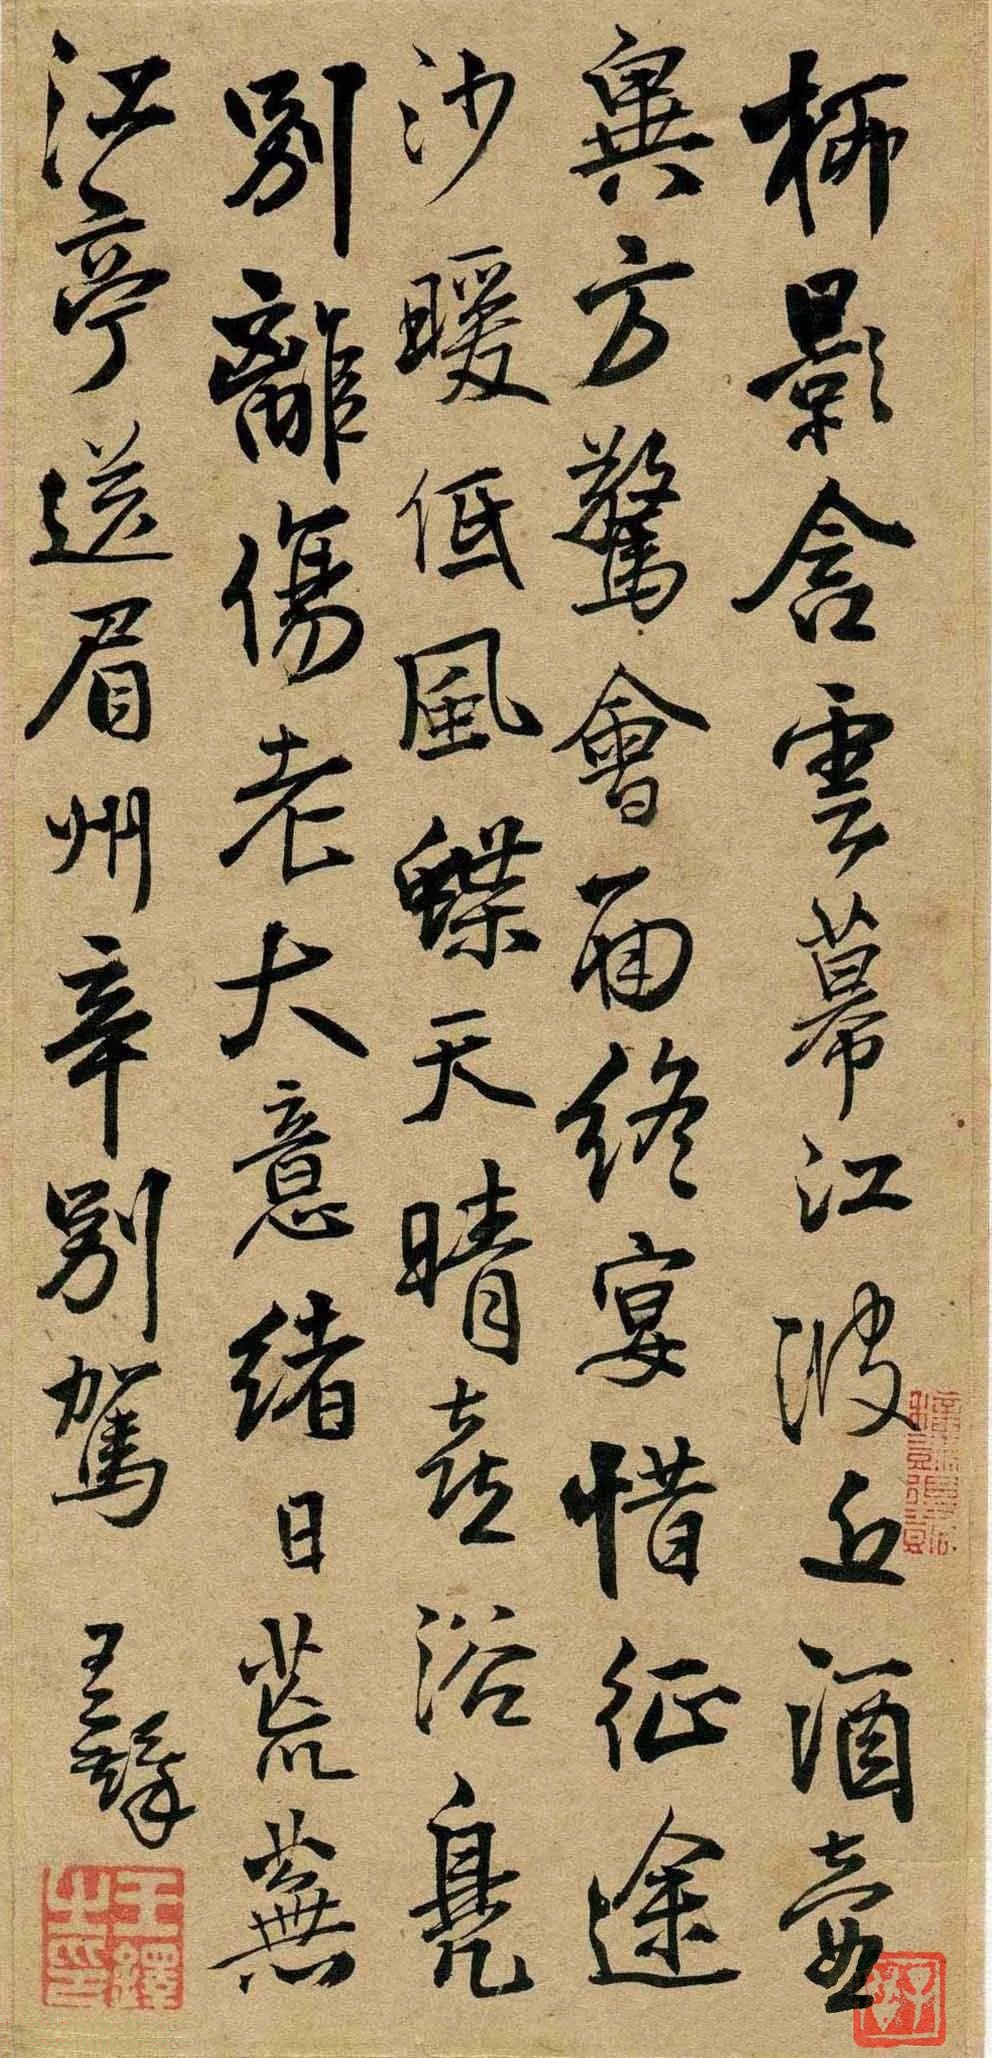 柳影含雲幕江波近酒壺
異方驚會面終宴惜征途
沙暖低風蝶天晴喜浴鳧
別離傷老大意緒日荒蕪
江亭送眉州辛別駕 王鐸
王鐸之印